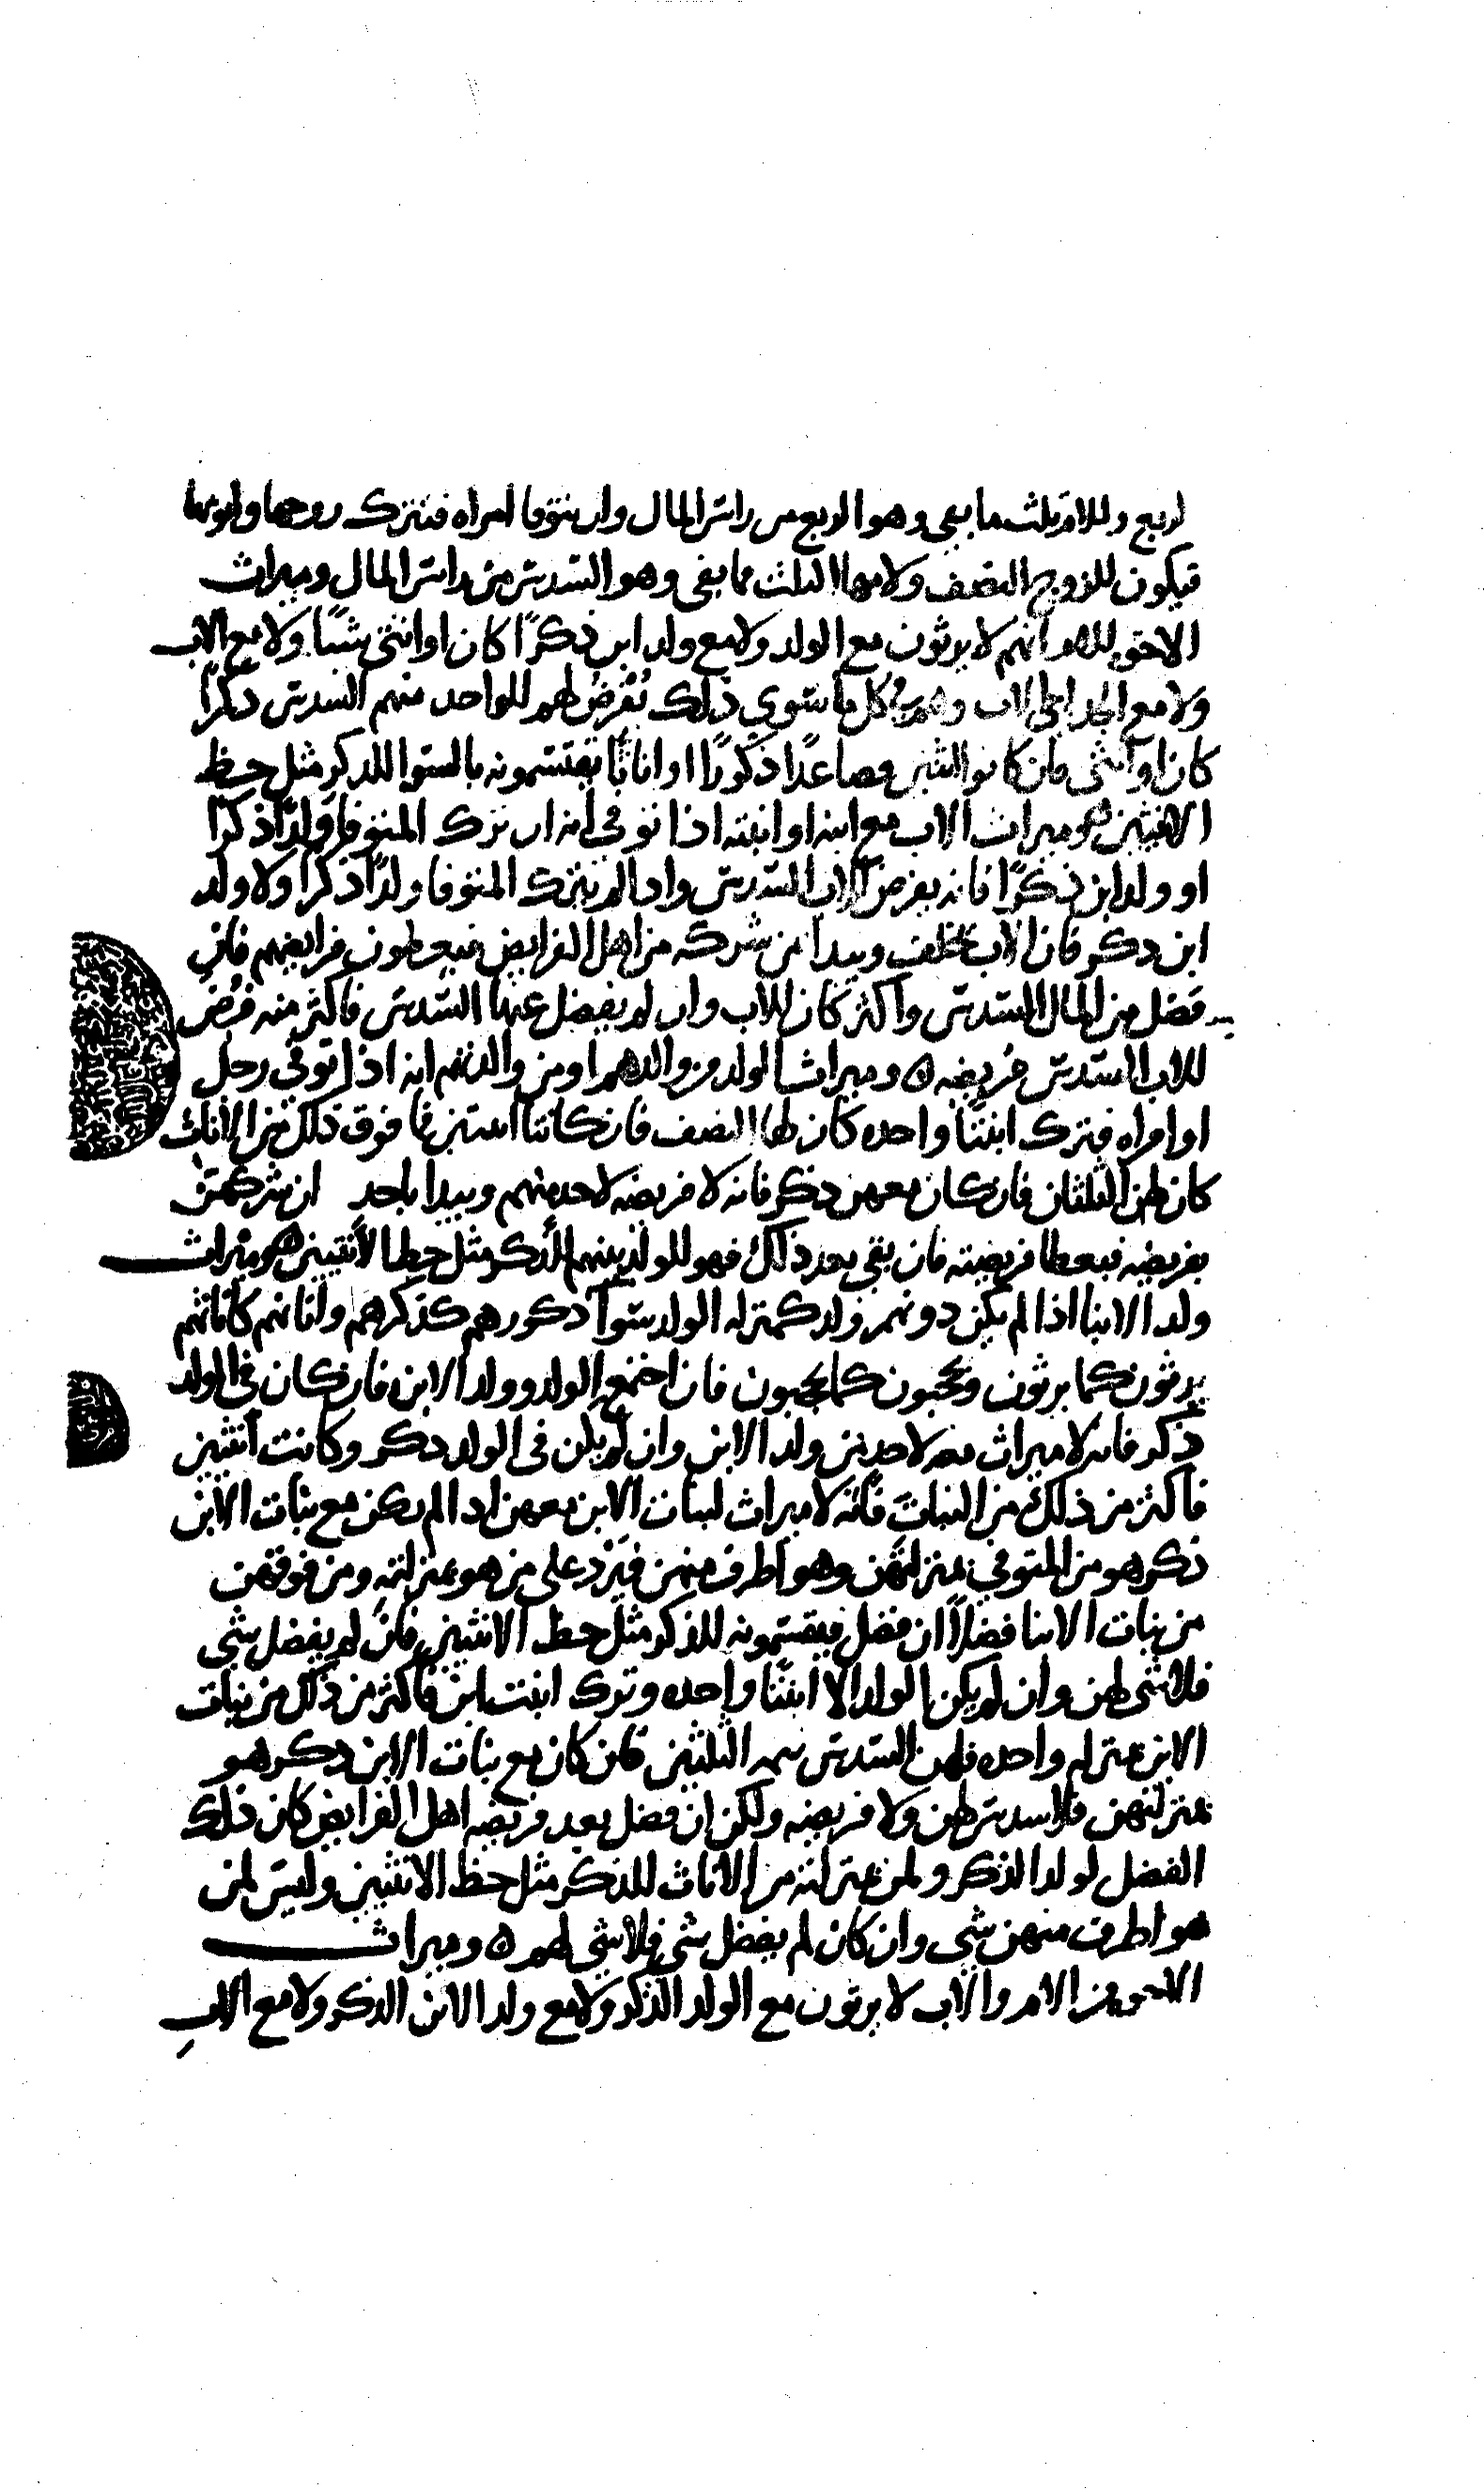 الربع وللام ثلث ما بقي وهو الربع من راس المال وان يتوفا امراه فتترك زوجها وابويها
فيكون للزوج النصف ولامها الثلث مما بقي وهو السدس من راس المال وميراث
الاخوه للام انهم لا يرثون مع الولد ولا مع ولد ابن ذكرًا كان او انثى شيًا ولا مع الاب
ولا مع الجد ابي الاب وهم في كل ما سوي ذلك يُفرضُ لهم للواحد منهم السدس ذكرًا
كان او انثى فان كانوا اثنين فصاعدًا ذكورًا او اناثًا يقتسمونه بالسوا للذكر مثل حظ
الانثيين ه وميراث الاب مع ابنه او ابنته اذا توفي انه ان ترك المتوفا ولدًا ذكرًا
او ولد ابن ذكرًا فانه يفرض للاب السدس واذا لم يترك المتوفا ولدًا ذكرًا ولا ولد
ابن ذكر فان الاب يخلف ويبدا من شركه من اهل الفرايض فيعطون فرايضهم فان
فضل من المال السدس واكثر كان للاب وان لم يفضل عنها السدس فاكثر منه فرض
للاب السدس فريضه ه وميراث الولد من والدهم او من والدتهم انه اذا توفي رجل
او امراه فترك ابنتًا واحده كان لها النصف فان كانتا اثنتين فما فوق ذلك من الاناث
كان لهن الثلثان فان كان معهن ذكر فانه لا فريضه لاحد منهم ويبدا باحد ان شركهم
بفريضه فيعطا فريضته فان بقي بعد ذلك فهو للولد بينهم للذكر مثل حظ الانثيين ه وميراث
ولد الابنا اذا لم يكن دونهم ولد كمنزله الولد سوآ ذكورهم كذكرهم واناثهم كاناثهم
يرثون كما يرثون ويحجبون كما يحجبون فان اجتمع الولد وولد الابن فان كان في الولد
ذكر فانه لا ميراث معه لاحد من ولد الابن وان لم يكن في الولد ذكر وكانت اثنتين
فاكثر من ذلك من البنات فانه لا ميراث لبنات الابن معهن اذا لم يكن مع بنات الابن
ذكر هو من المتوفي بمنزلتهن وهو اطرف منهن فيرد على من هو بمنزلته ومن فوقهن
من بنات الابنا فضلًا ان فضل فيقتسمونه للذكر مثل حظ الانثيين فان لم يفضل شي
فلا شي لهن وان لم يكن الولد الا ابنتًا واحده وترك ابنت ابن فاكثر من ذلك من بنات
الابن بمنزله واحده فلهن السدس تتمه الثلثين فان كان مع بنات الابن ذكر هو
بمنزلتهن فلا سدس لهن ولا فريضه ولكن ان فضل بعد فريضه اهل الفرايض كان ذلك
الفضل لولد الذكر ولمن بمنزلته من الاناث للذكر مثل حظ الانثيين وليس لمن
هو اطرف منهن شي وان كان لم يفضل شي فلا شي لهم ه وميراث
الاخوه من الام والاب لا يرثون مع الولد الذكر ولا مع ولد الابن الذكر ولا مع الاب